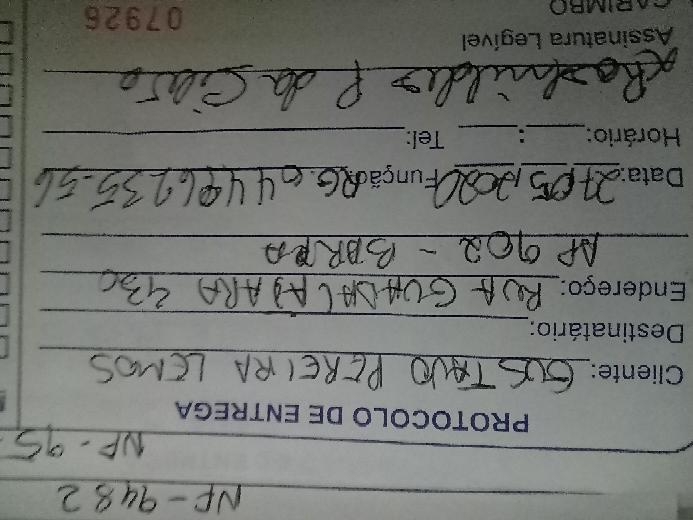 NF-9482
NF-95
PROTOCOLO DE ENTREGA
Cliente: GUSTAVO PEREIRA LEMOS
Destinatário:
Endereço: RUA GUADALAJARA 430
AP 902 - BARRA
Data: 27/05/2020 Função RG.04496235-56
Horário: : Tel:
P da Silva
Assinatura Legível
CARIMBO
07926